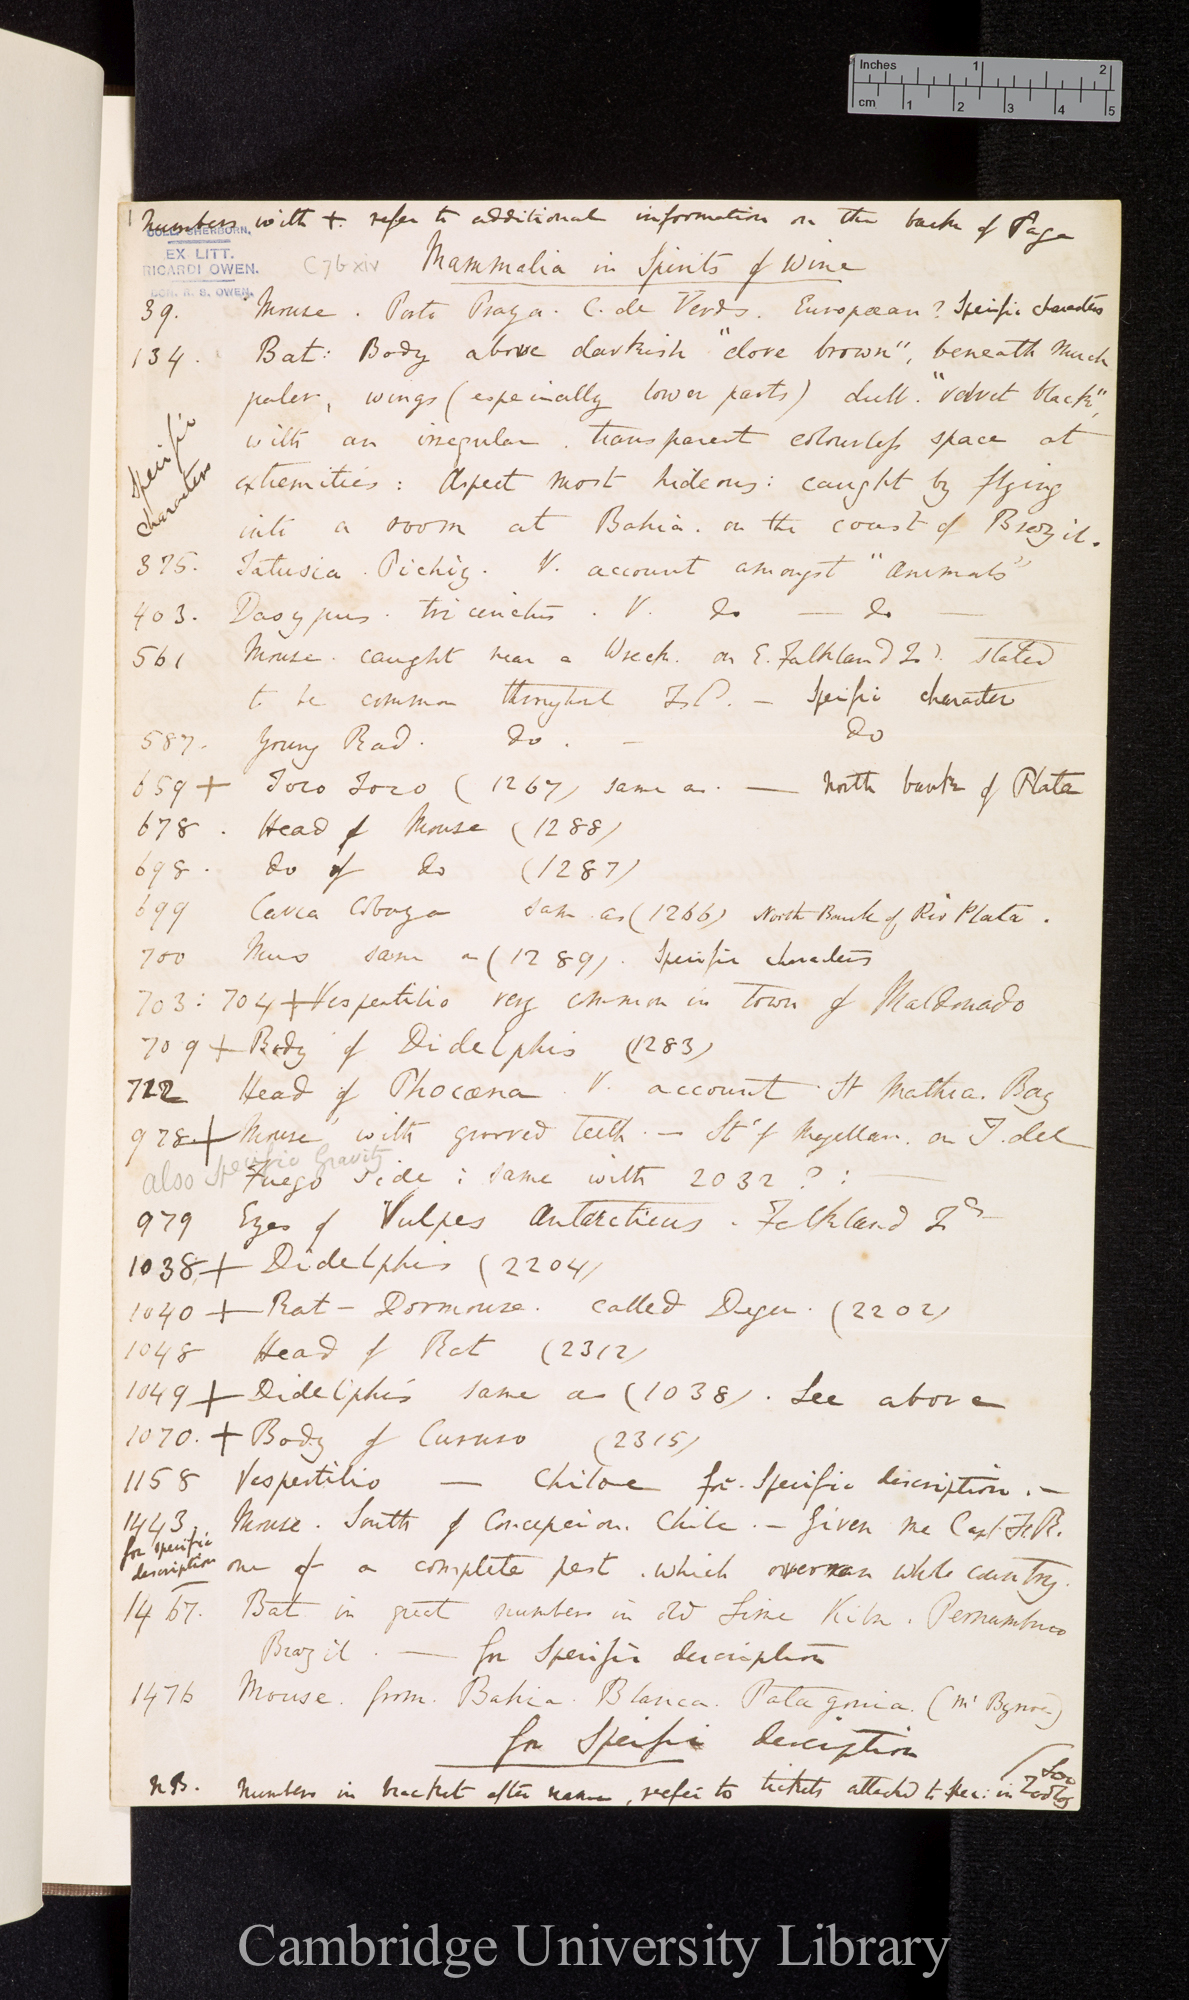 Inches 1 2
cm 1 2 3 4 5
1 Numbers with +. refer to additional information on the back of Page
COLL. SHERBORN.
EX LITT.
RICARDI OWEN.
R. S. OWEN.
C76xiv
Mammalia in Spirits of Wine
39. Mouse. Porto Praya. C. de Verds. European? Specific characters
134. Bat: Body above darkish "clove brown", beneath much
paler, wings (especially lower parts) dull. "velvet black",
with an irregular transparent colourless space at
extremities: Aspect most hideous: caught by flying
into a room at Bahia. on the coast of Brazil.
Specific
characters
375. Tatusia Pichiy. V. account amongst "Animals"
403. Dasypus. tricinctus. V. do — do —
561 Mouse. caught near a Wreck. on E. Falkland Isd. stated
to be common throughout Isd. — Specific character
587. Young Rad. do. — do
659 + Toco Toco (1267) same as. — North bank of Plata
678. Head of Mouse (1288)
698. do of do (1287)
699 Cavia Cobaya same as (1266) North Bank of Rio Plata.
700 Mus same as (1289). Specific characters
703: 704 + Vespertilio very common in town of Maldonado
709 + Body of Didelphis (1283)
722 Head of Phocæna V. account St Mathia. Bay
978 + Mouse with grooved teeth. — St of Magellan. on T. del
Fuego side: same with 2032?: —
also Specific Gravity
979 Eyes of Vulpes antarcticus. Falkland Is
1038 + Didelphis (2204)
1040 + Rat-Dormouse. called Degu. (2202)
1048 Head of Rat (2312)
1049 + Didelphis same as (1038). See above
1070. + Body of Cururo (2315)
1158 Vespertilio — Chiloe for. Specific discription. —
1443. Mouse. South of Concepcion. Chile. — Given me Capt. F.R.
for specific
description
one of a complete pest. which overran whole country.
1467. Bat in great numbers in old Lime Kiln. Pernambuco
Brazil. — for Specific description
1476 Mouse. from. Bahia. Blanca. Patagonia. (Mr Bynoe)
for Specific description
N.B. Numbers in bracket after name, refer to tickets attached to spec: in Zoolog
Soc
Cambridge University Library